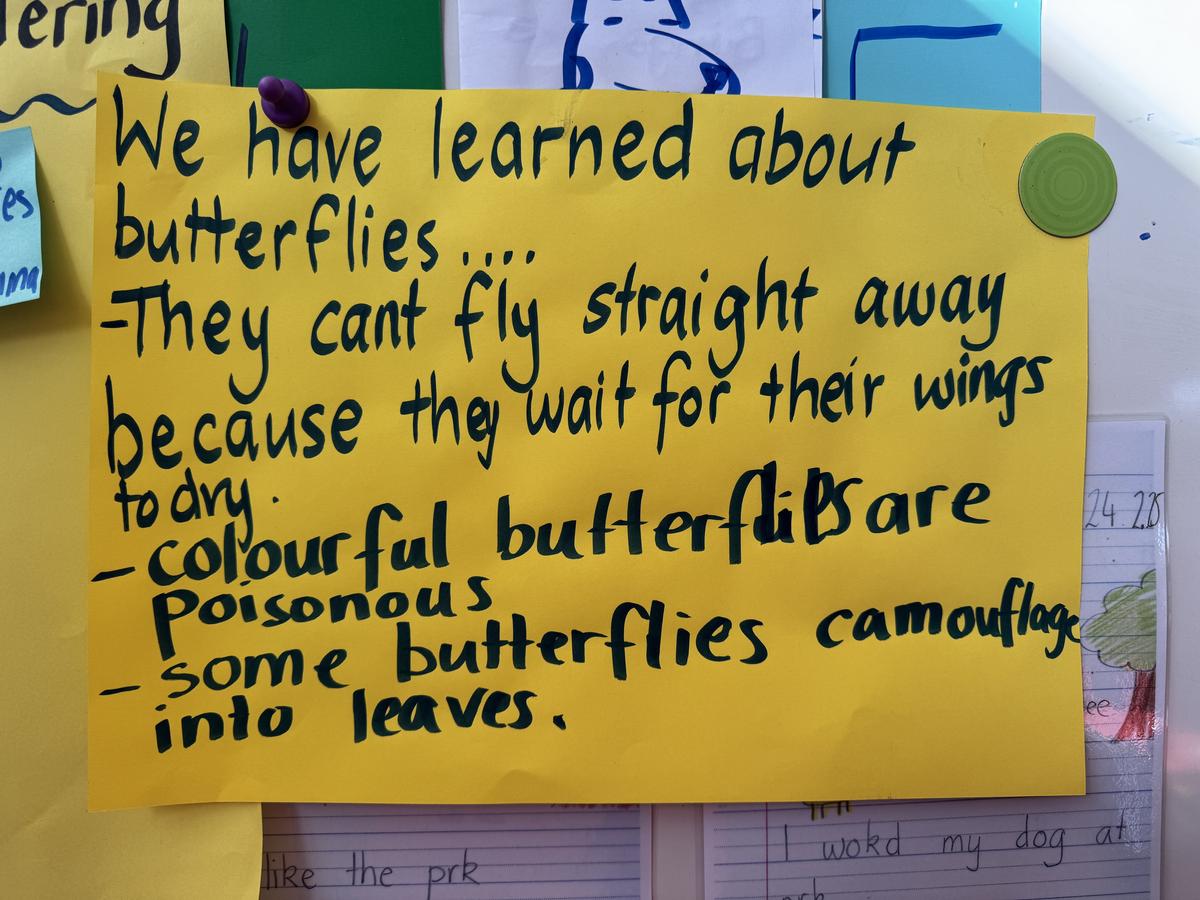 ering
es
We have learned about
butterflies ....
-They cant fly straight away
because they wait for their wings
to dry.
- colourful butterflies are
poisonous
- some butterflies camouflage
into leaves.
24
ee
like the prk
I wokd my dog at